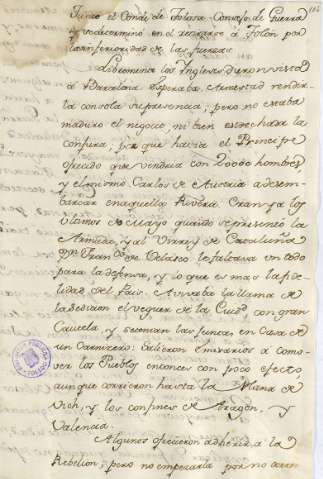 Junto el Conde de Tolosa Consejo de Guerra
se determinó en el retirarse a Tolón por
la inferioridad de las fuerzas
Los Ingleses dieron vista
a Barzelona esperaba Armestad rendirla
con sola su presencia; pero no estaba
maduro el negocio, ni bien estrechada la
conjura, por que havia el Principe
ofrecido que vendria con 20000 hombres
y el mismo Carlos de Austria a desem
barcar en aquella Rivera Eran ya los
ultimos de Mayo quando se presentó la
Armada, y al Virrey de Cataluña
Dn. Franco. de Velasco le faltava un todo
para la defensa, y lo que es mas la fide
lidad del Pais. Avivaba la llama de
la sedicion el veguer de la Ciud. con gran
Cautela, y se tenian las juntas en Casa de
un Carnizero: Salieron Emisarios a como
ver los Pueblos entonces con poco efecto
aunque corrieron hasta la Plana de
Vich, y los confines de Aragon, y
Valencia.
Algunos ofrecieron adherir a la
Rebelion; pero no empezarla por no